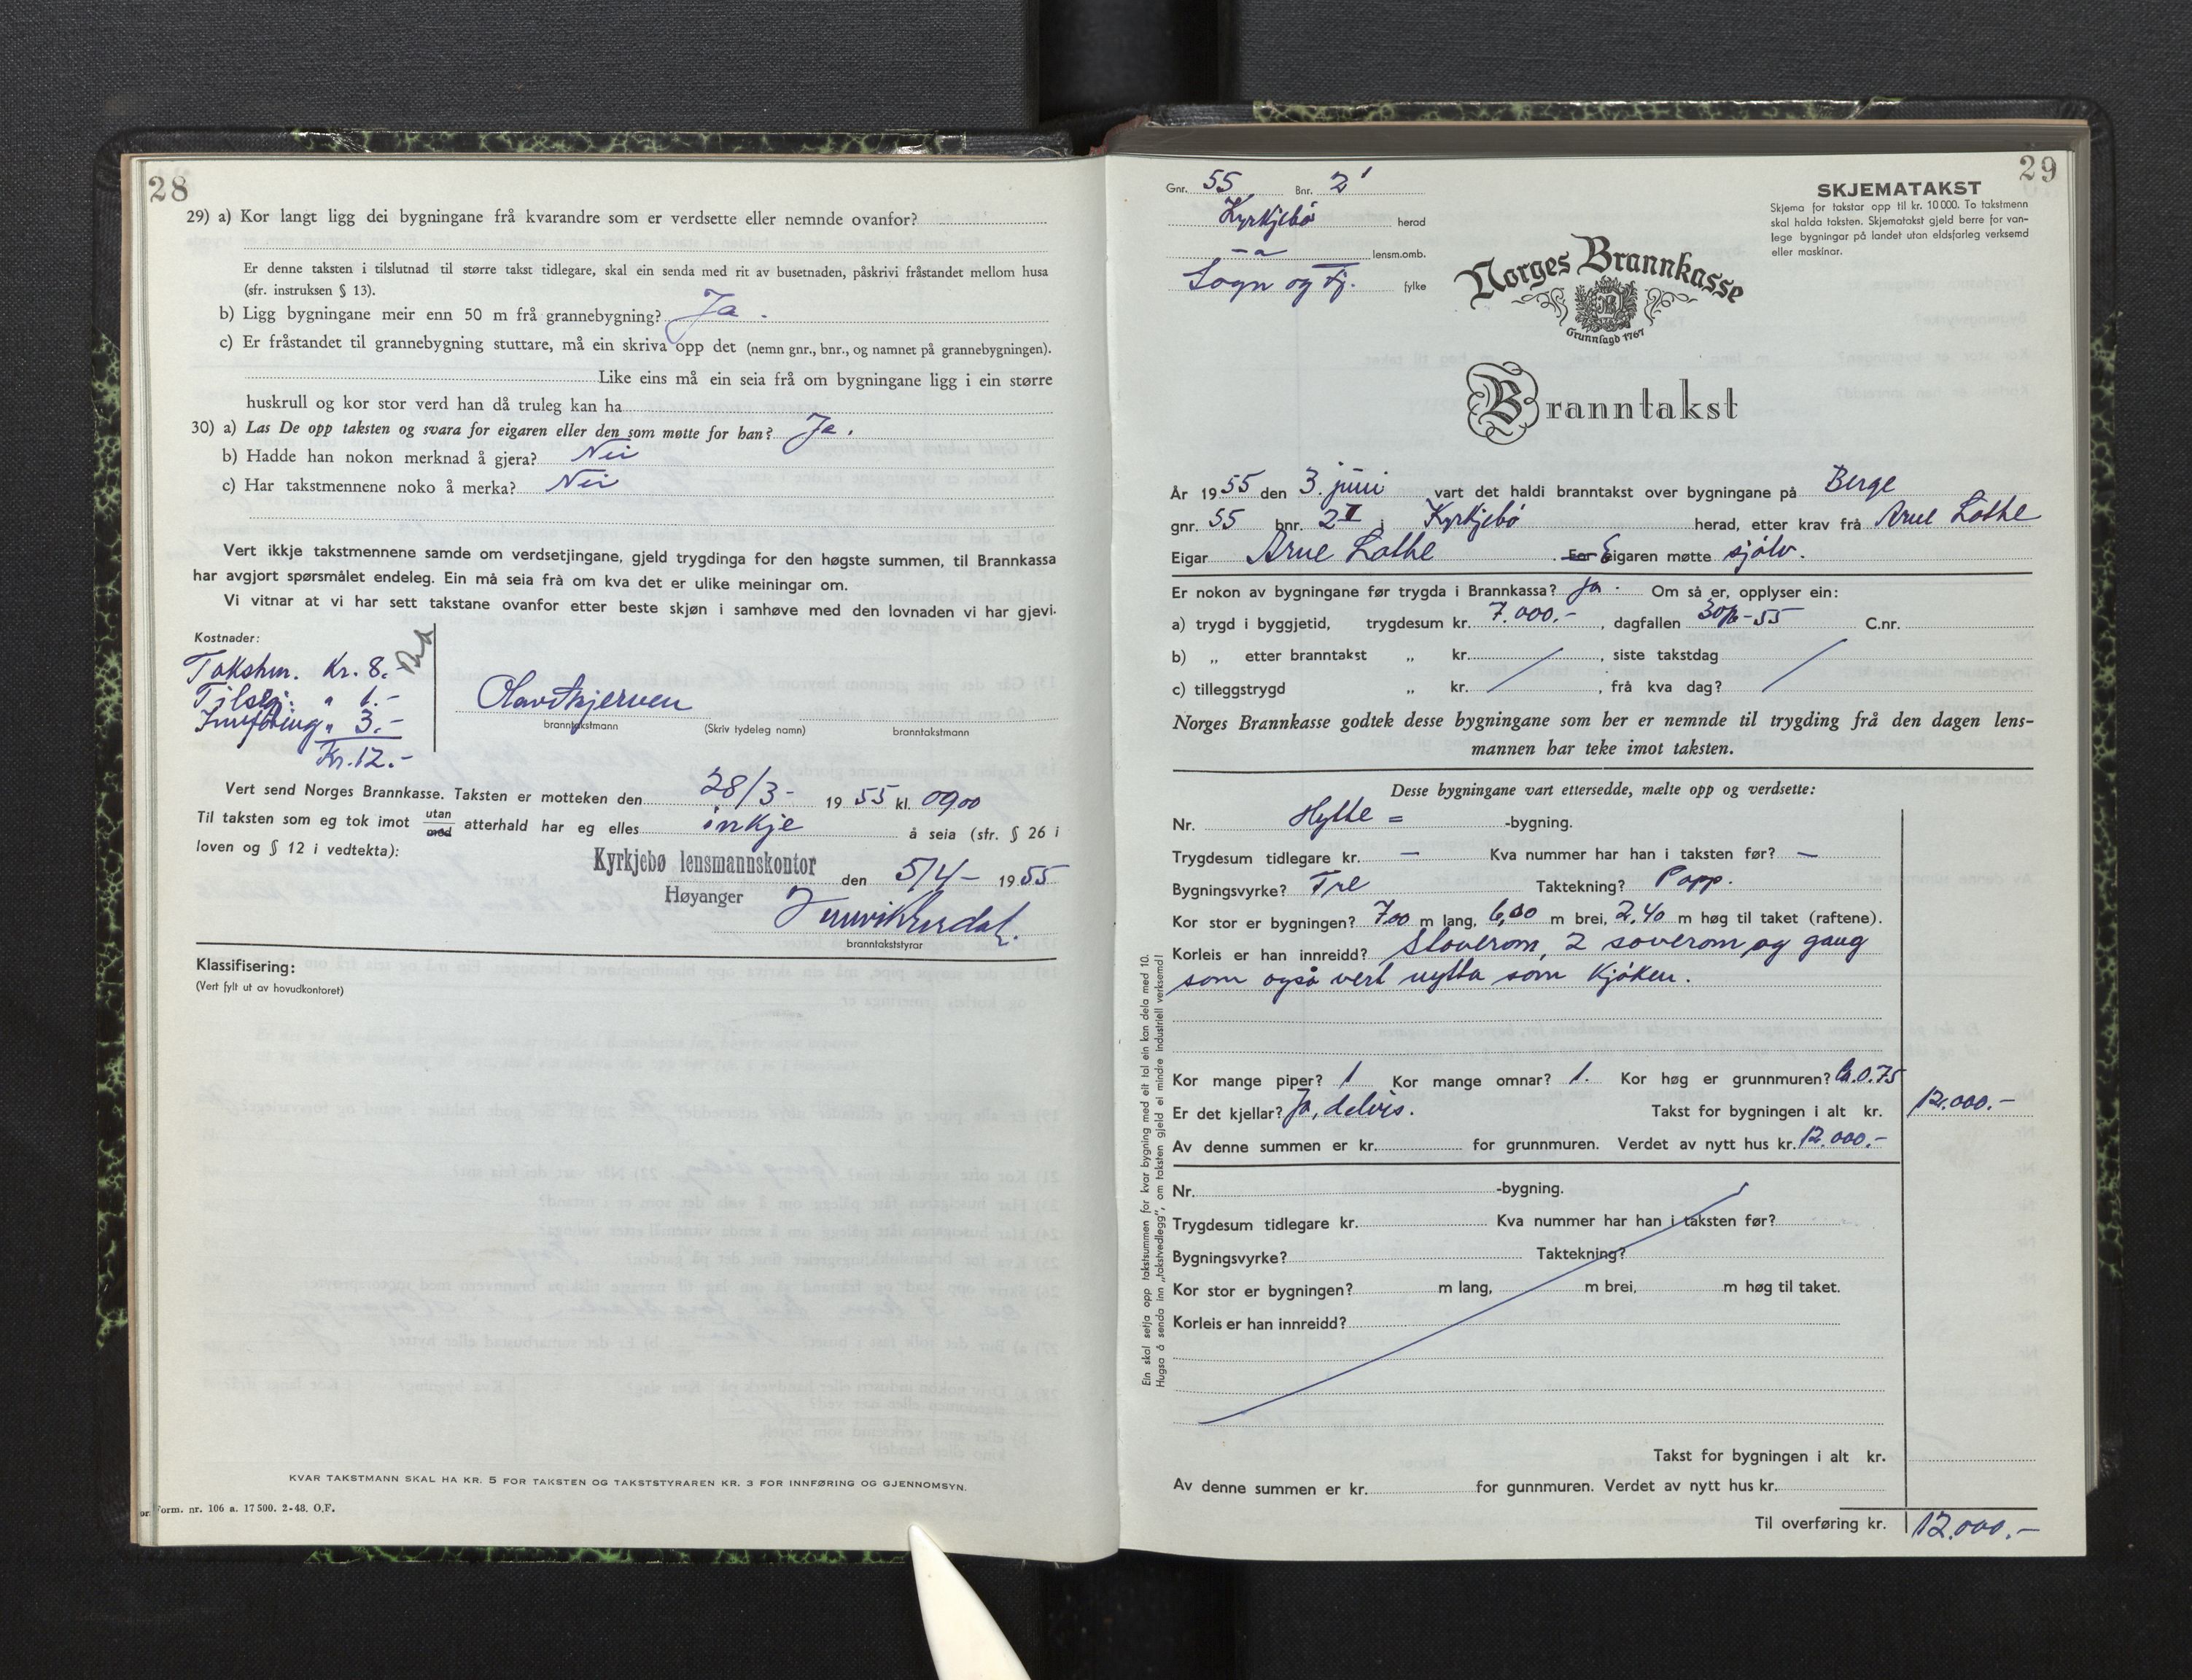 28
29) a) Kor langt ligg dei bygningane frå kvarandre som er verdsette eller nemnde ovanfor?
Er denne taksten i tilslutnad til større takst tidlegare, skal ein senda med rit av busetnaden, påskrivi fråstandet mellom husa
(sfr. instruksen § 13).
b) Ligg bygningane meir enn 50 m frå grannebygning? Ja.
c) Er fråstandet til grannebygning stuttare, må ein skriva opp det (nemn gnr., bnr., og namnet på grannebygningen).
Like eins må ein seia frå om bygningane ligg i ein større
huskrull og kor stor verd han då truleg kan ha
30) a) Las De opp taksten og svara for eigaren eller den som møtte for han? Ja.
b) Hadde han nokon merknad å gjera? Nei
c) Har takstmennene noko å merka? Nei
Vert ikkje takstmennene samde om verdsetjingane, gjeld trygdinga for den høgste summen, til Brannkassa
har avgjort spørsmålet endeleg. Ein må seia frå om kva det er ulike meiningar om.
Vi vitnar at vi har sett takstane ovanfor etter beste skjøn i samhøve med den lovnaden vi har gjevi.
Kostnader:
Takstm. Kr. 8.-
Tilseg: " 1.-
Innföring " 3.-
Kr. 12.-
Olav Skjerven
branntakstmann (Skriv tydeleg namn) branntakstmann
Vert send Norges Brannkasse. Taksten er motteken den 28/3- 1955 kl. 0900
Til taksten som eg tok imot utan/med atterhald har eg elles inkje å seia (sfr. § 26 i
loven og § 12 i vedtekta):
Kyrkjebø lensmannskontor den 5/4- 1955
Høyanger
branntakststyrar
Klassifisering:
(Vert fylt ut av hovudkontoret)
KVAR TAKSTMANN SKAL HA KR. 5 FOR TAKSTEN OG TAKSTSTYRAREN KR. 3 FOR INNFØRING OG GJENNOMSYN.
Form. nr. 106 a. 17 500. 2-48. O.F.
29
Gnr. 55 Bnr. 2'
Kyrkjebö herad
-"- lensm.omb.
Sogn og Fj. fylke
SKJEMATAKST
Skjema for takstar opp til kr. 10 000. To takstmenn
skal halda taksten. Skjematakst gjeld berre for van-
lege bygningar på landet utan eldsfarleg verksemd
eller maskinar.
Norges Brannkasse
Grunnlagd 1767
Branntakst
År 1955 den 3. juni vart det haldi branntakst over bygningane på Berge
gnr. 55 bnr. 2 I i Kyrkjebö herad, etter krav frå Arne Lothe
Eigar Arne Lothe For Eigaren møtte sjölv.
Er nokon av bygningane før trygda i Brannkassa? Ja. Om så er, opplyser ein:
a) trygd i byggjetid, trygdesum kr. 7.000.-, dagfallen 30/6-55 C.nr.
b) „ etter branntakst „ kr. , siste takstdag
c) tilleggstrygd „ kr. , frå kva dag?
Norges Brannkasse godtek desse bygningane som her er nemnde til trygding frå den dagen lens-
mannen har teke imot taksten.
Desse bygningane vart ettersedde, mælte opp og verdsette:
Nr. Hytte = -bygning.
Trygdesum tidlegare kr. — Kva nummer har han i taksten før? —
Bygningsvyrke? Tre Taktekning? Papp.
Kor stor er bygningen? 7,00 m lang, 6,00 m brei, 2,40 m høg til taket (raftene).
Korleis er han innreidd? Stoverom, 2 soverom og gang
som også vert nytta som kjöken.
Kor mange piper? 1 Kor mange omnar? 1. Kor høg er grunnmuren? Ca. 0.75
Er det kjellar? Ja, delvis. Takst for bygningen i alt kr. 12.000.-
Av denne summen er kr. for grunnmuren. Verdet av nytt hus kr. 12.000.-
Nr. -bygning.
Trygdesum tidlegare kr. Kva nummer har han i taksten før?
Bygningsvyrke? Taktekning?
Kor stor er bygningen? m lang, m brei, m høg til taket.
Korleis er han innreidd?
Takst for bygningen i alt kr.
Av denne summen er kr. for gunnmuren. Verdet av nytt hus kr.
Til overføring kr. 12.000.-
Ein skal setja opp takstsummen for kvar bygning med eit tal ein kan dela med 10.
Hugsa å senda inn „takstvedlegg", om taksten gjeld ei mindre industriell verksemd!